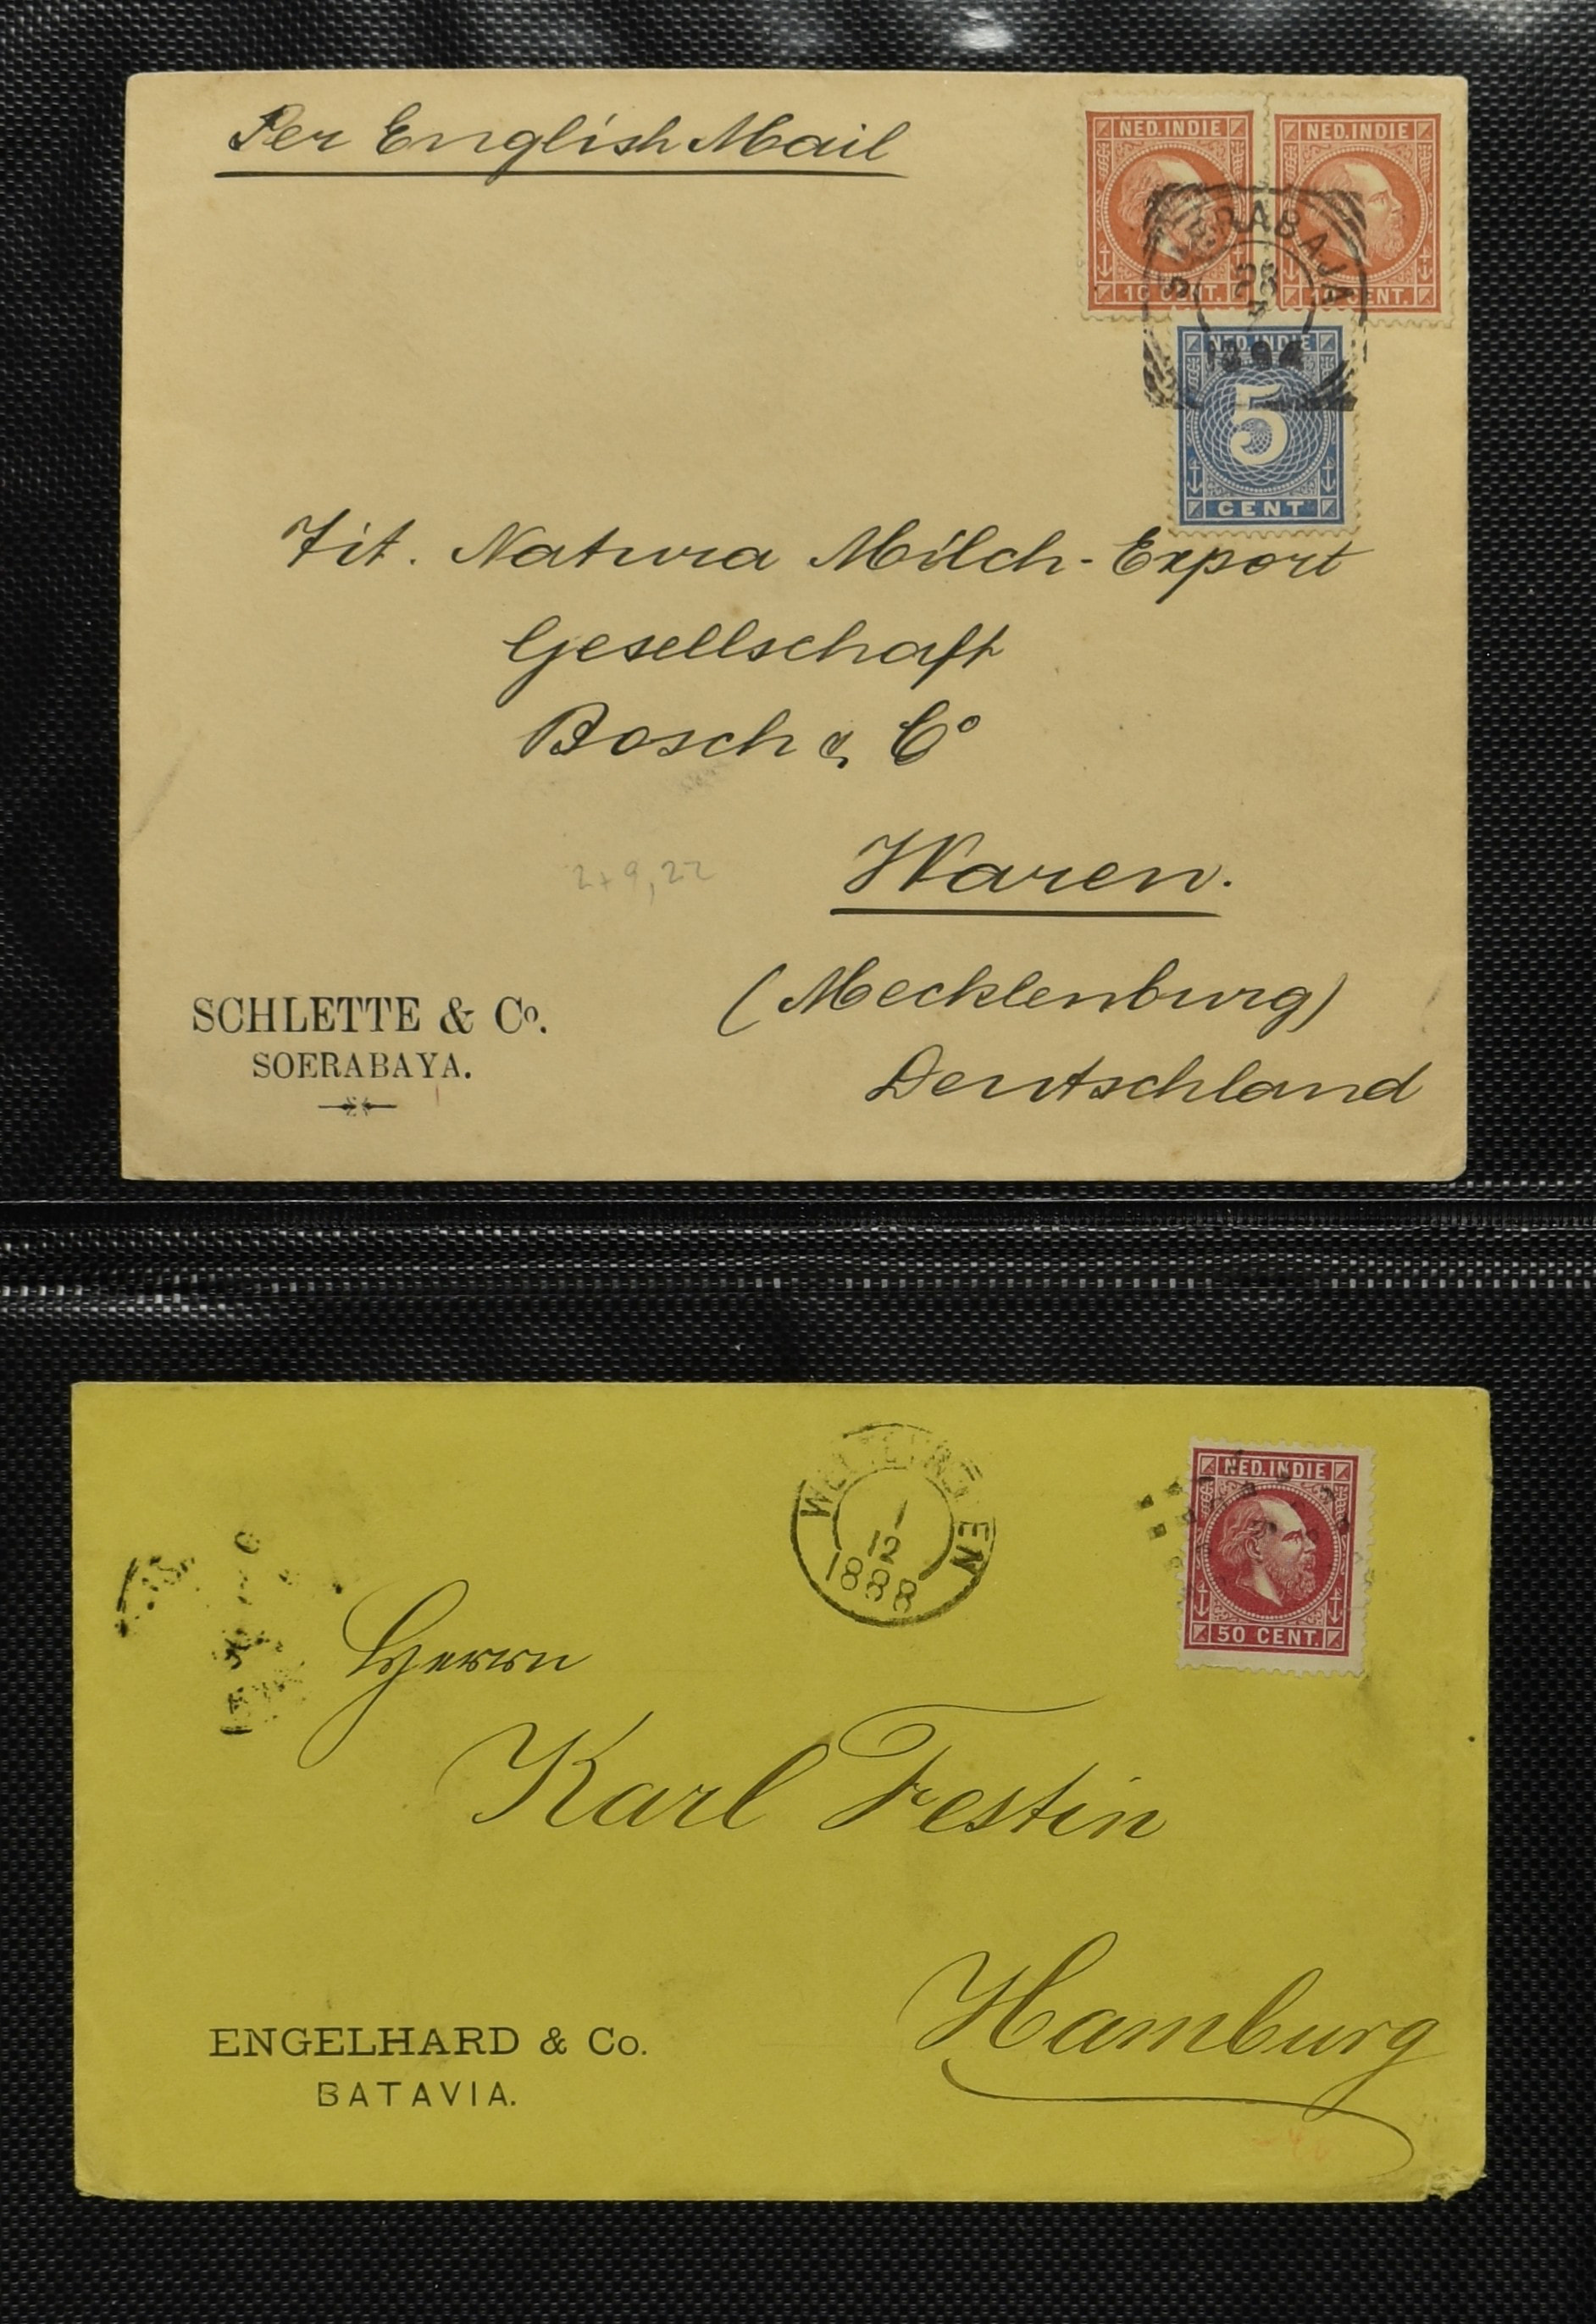 Per English Mail
NED. INDIE
NED. INDIE
10 CENT.
10 CENT.
SOERABAJA
1894
NED. INDIE
5
CENT
Tit. Natura Milch-Export
Gesellschaft
Bosch & Co
Waren.
(Mecklenburg)
Deutschland
2+9,22
SCHLETTE & Co.
SOERABAYA.
WELTEVREDEN
1
12
1888
NED. INDIE
50 CENT.
Herrn
Karl Festin
Hamburg
ENGELHARD & Co.
BATAVIA.